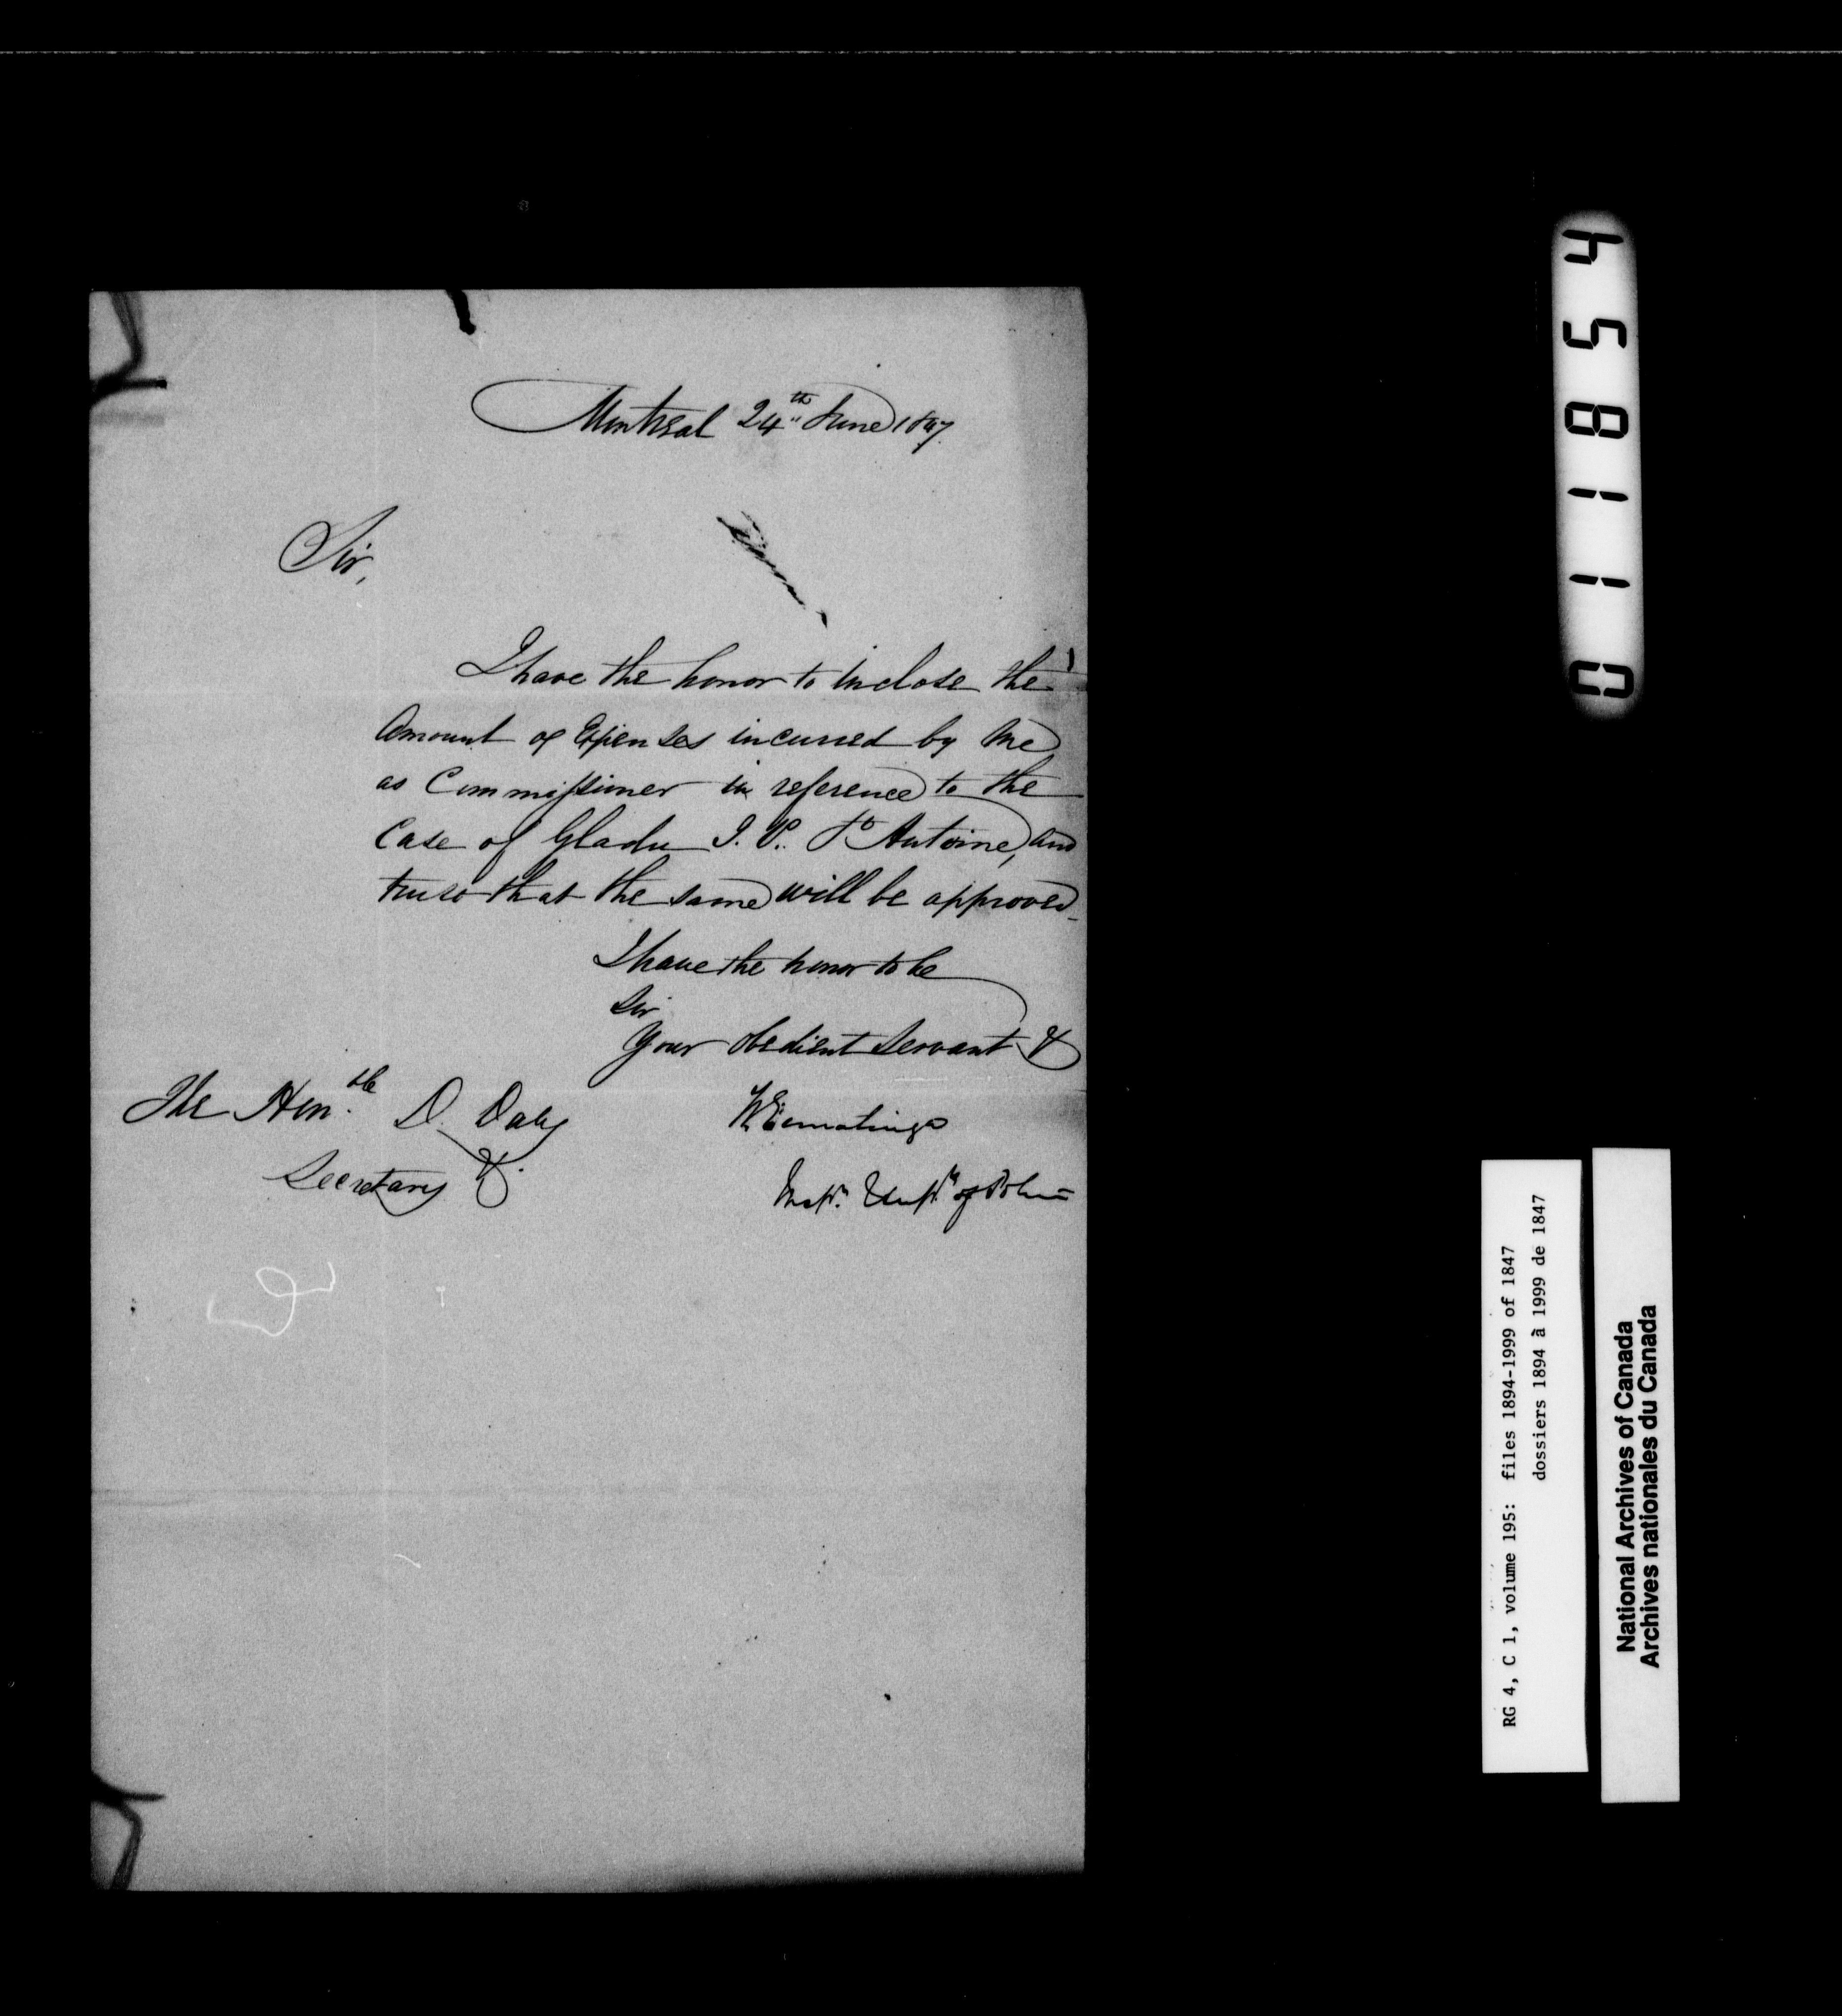 Montreal 24th June 1847.
Sir,
I have the honor to inclose the
Amount of Expenses incurred by me
as Commissioner in reference to the
Case of Gladu J. P. St Antoine, and
trust that the same will be approved
I have the honor to be
Sir
Your obedient Servant &
The Honble D. Daly
Secretary &.
W Ermatinger
of Police
011854
RG 4, C 1, volume 195: files 1894-1999 of 1847
dossiers 1894 à 1999 de 1847
National Archives of Canada
Archives nationales du Canada